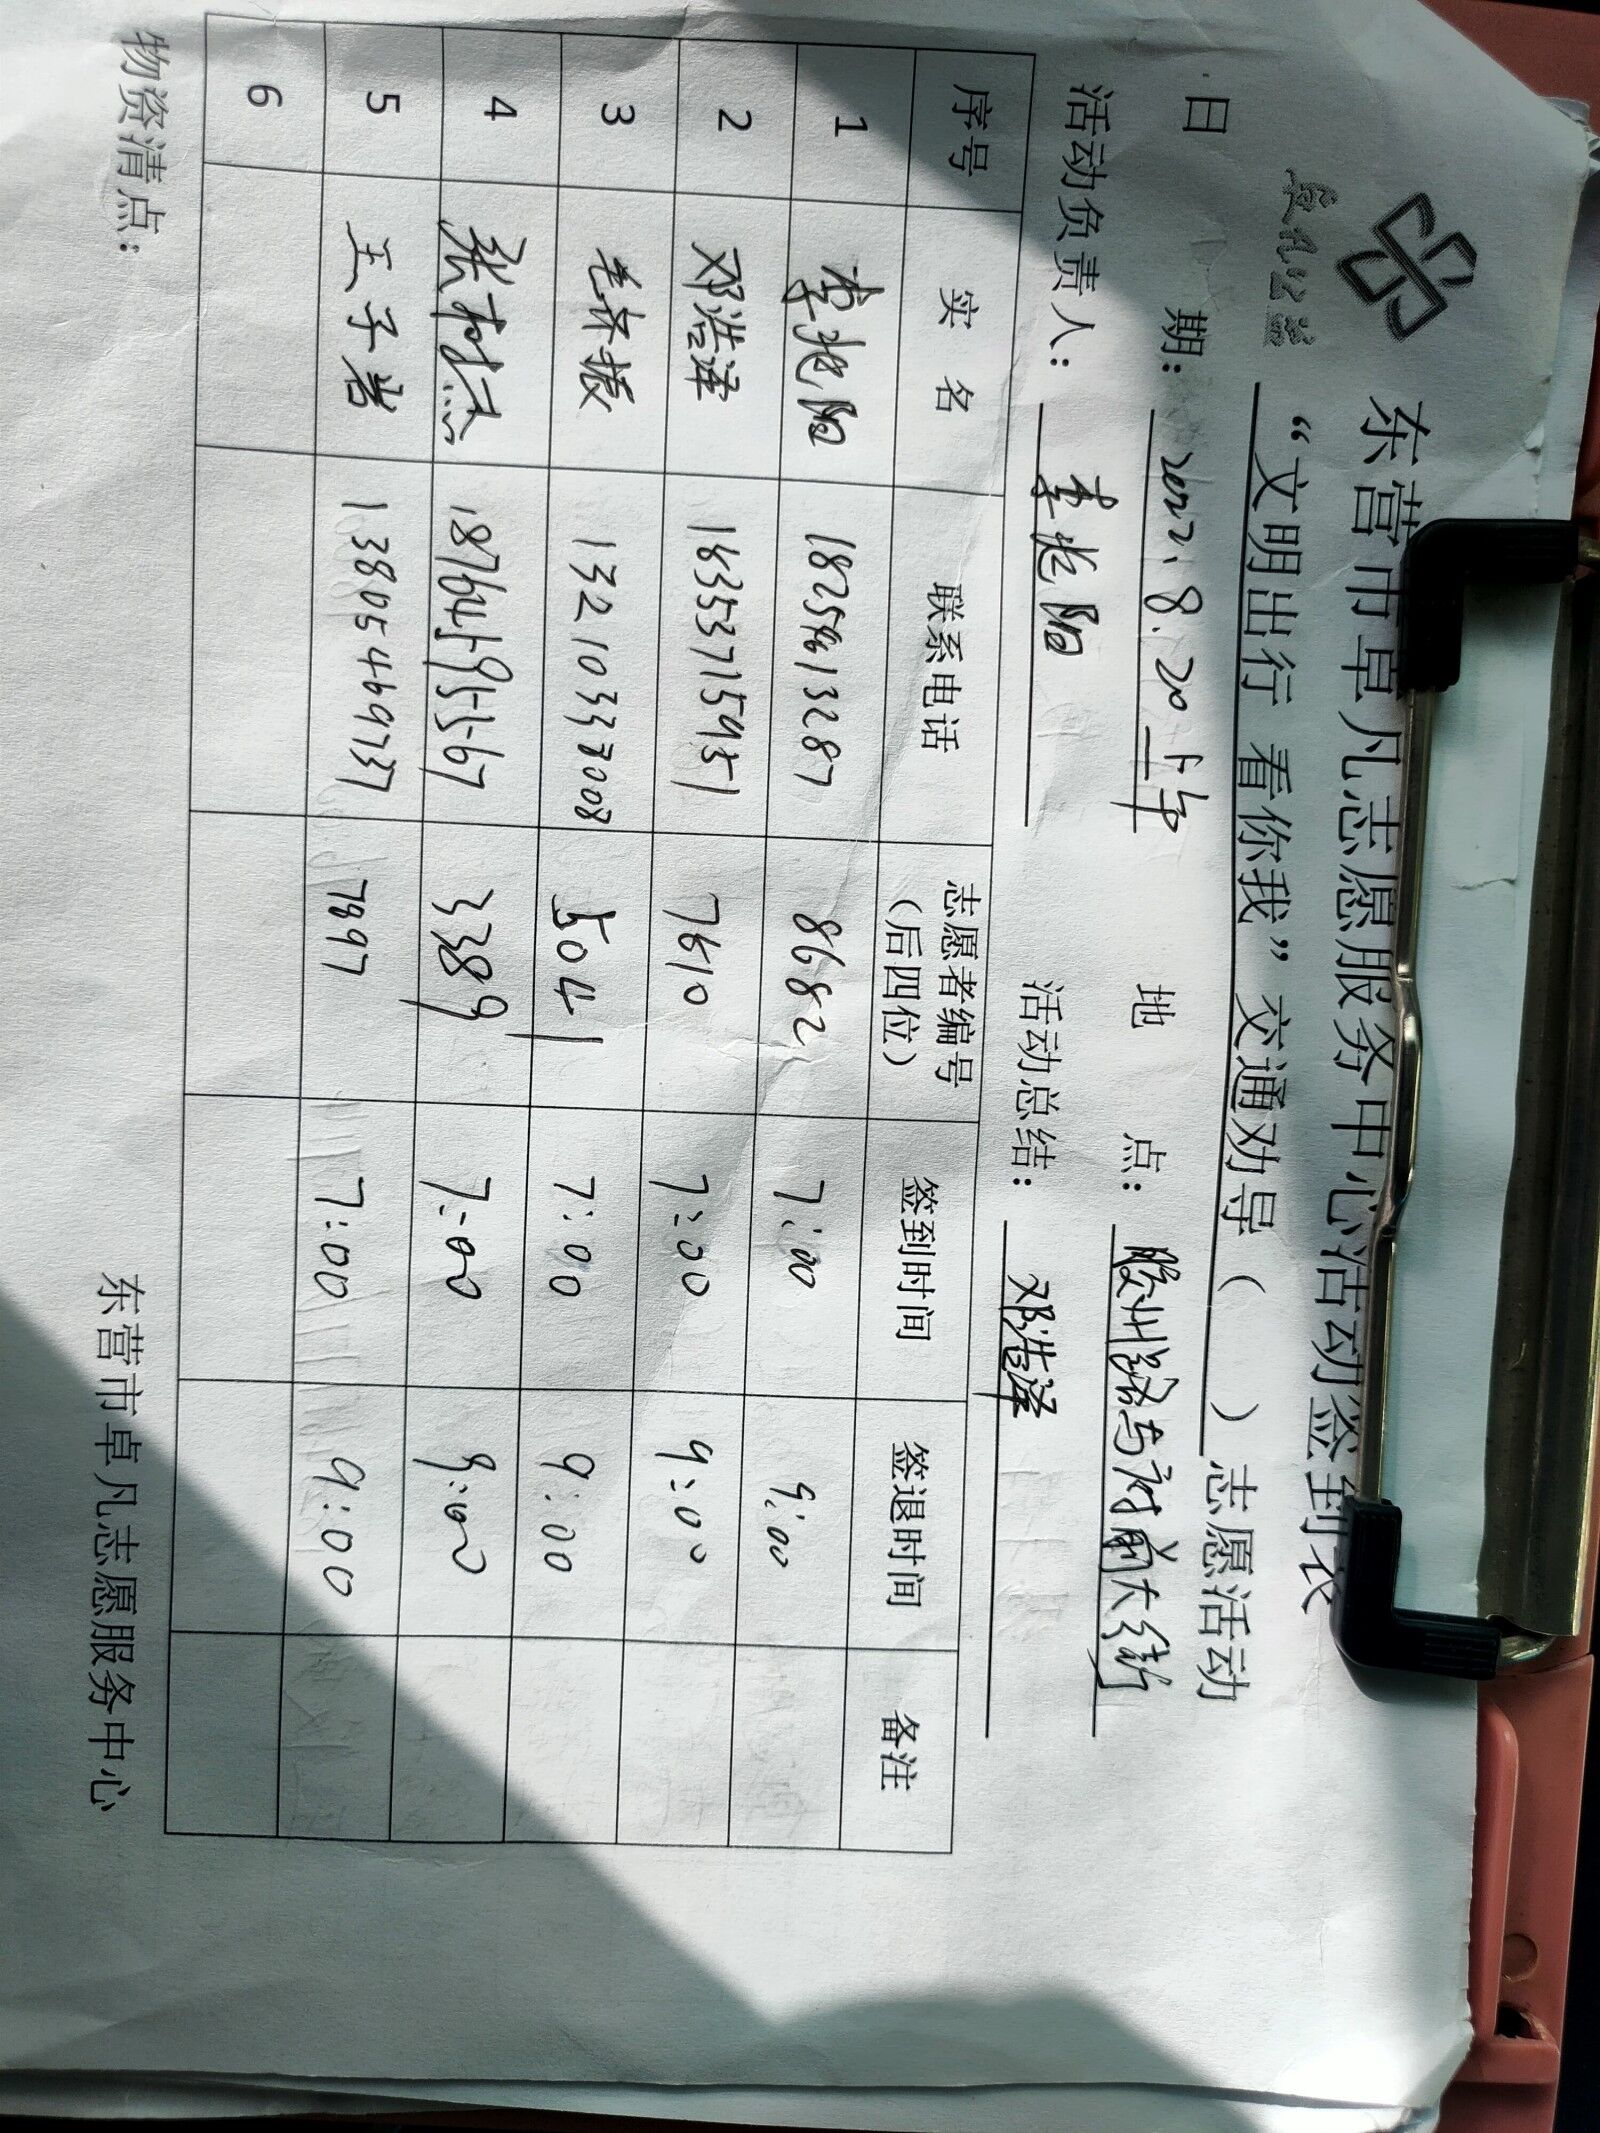 卓凡公益
东营市卓凡志愿服务中心活动签到表
“文明出行 看你我”交通劝导（ ）志愿活动
日 期：2022.8.20上午 地 点：胶州路与府前大街
活动负责人：李兆阳 活动总结：邓浩泽
序号 实 名 联系电话 志愿者编号（后四位） 签到时间 签退时间 备注
1 李兆阳 18254613287 8682 7:00 9:00
2 邓浩泽 7610 7:00 9:00
3 13210337008 5041 7:00 9:00
4 18764195367 3389 7:00 9:00
5 王子岩 13805469737 7897 7:00 9:00
6
物资清点：
东营市卓凡志愿服务中心